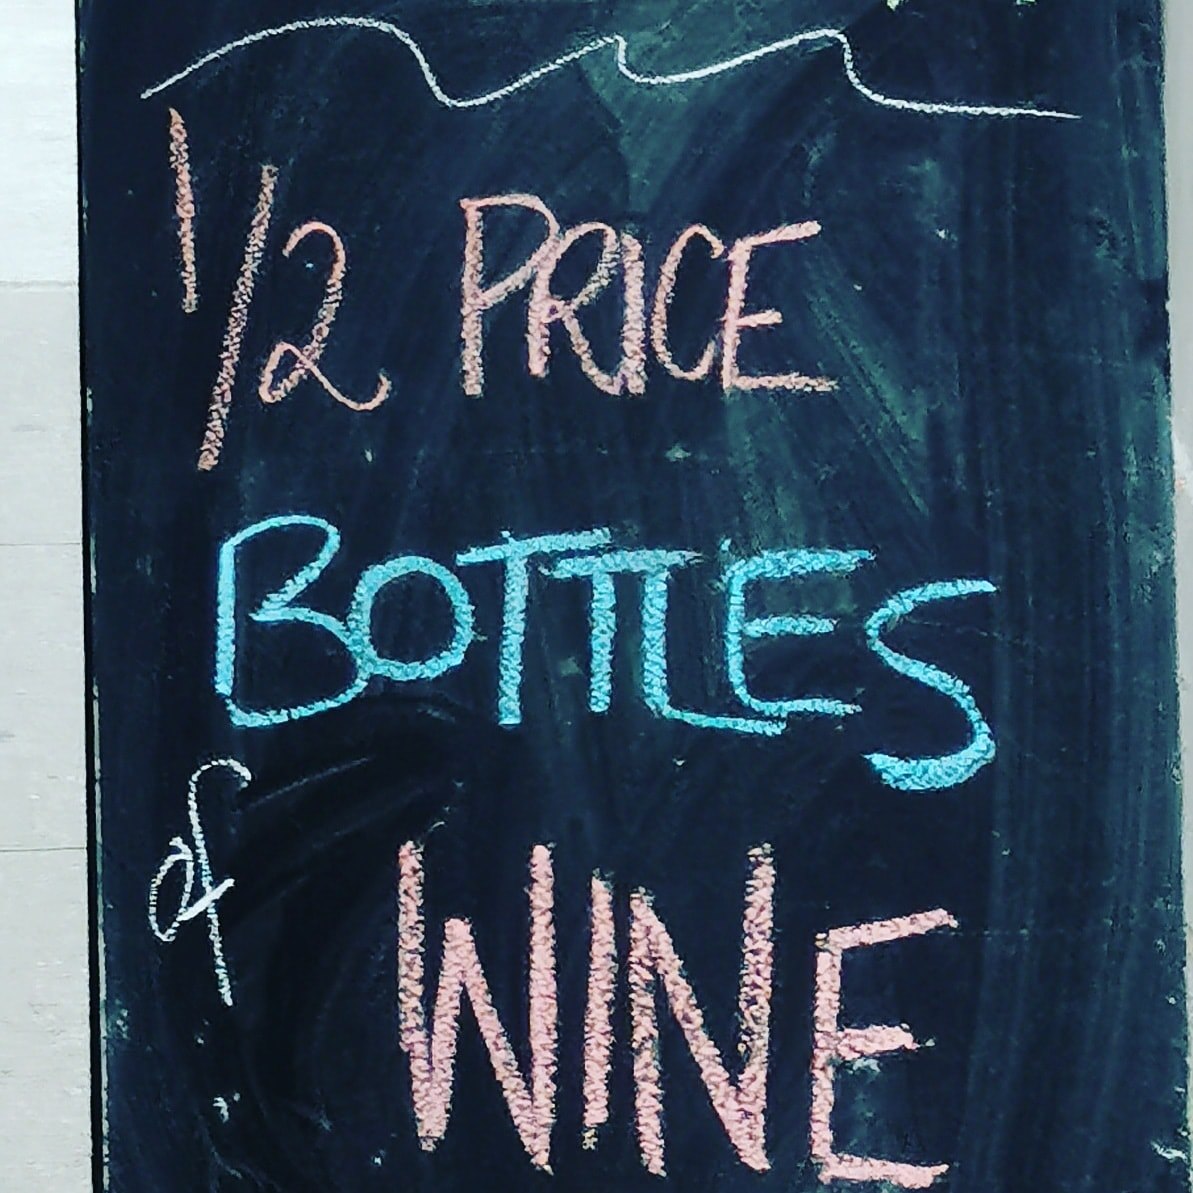 1/2 PRICE
BOTTLES
of
WINE